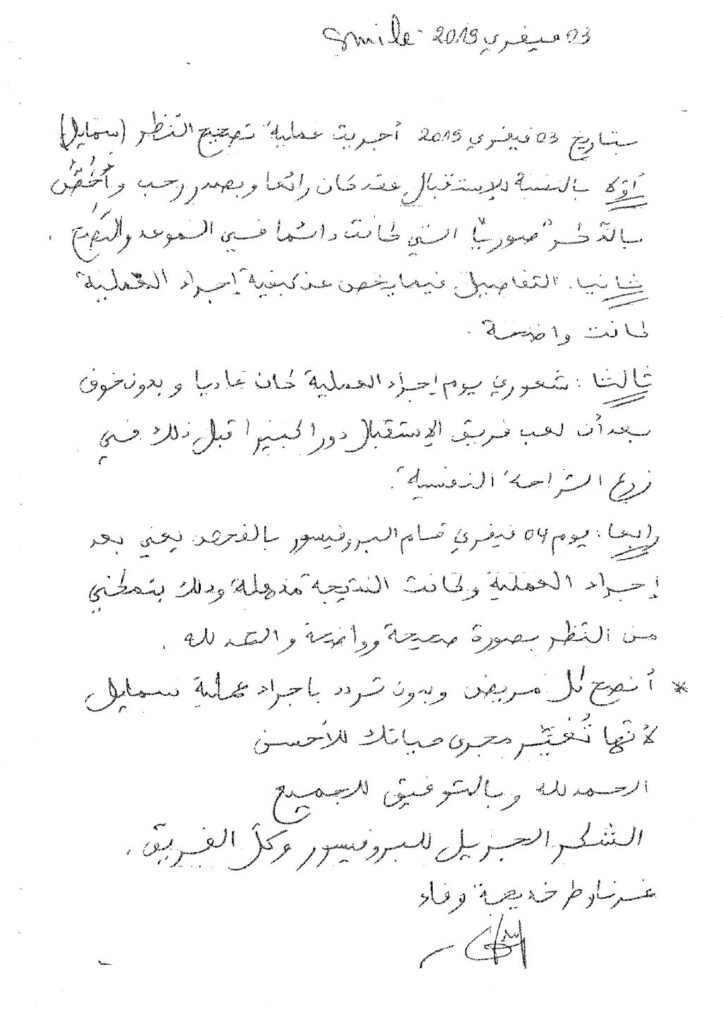 03 فيفري 2019 Smile
بتاريخ 03 فيفري 2019 أجريت عملية تصحيح النظر (سمايل)
أولا بالنسبة للإستقبال فقد كان رائعا وبصدر رحب وأخُصُّ
بالذكر "صوريا" التي كانت دائما في الموعد والنصح.
ثانيا. التفاصيل فيما يخص عن كيفية إجراء العملية
كانت واضحة.
ثالثا: شعوري يوم إجراء العملية كان عاديا و بدون خوف
بعد أن لعب فريق الإستقبال دورا كبيرا قبل ذلك في
زرع الراحة النفسية.
رابعا: يوم 04 فيفري قام البروفيسور بالفحص يعني بعد
إجراء العملية وكانت النتيجة مذهلة وذلك بتمكني
من النظر بصورة صحيحة وواضحة والحمد لله.
* أنصح كل مريض وبدون تردد باجراء عملية سمايل
لأنها تُغيّر مجرى حياتك للأحسن
الحمد لله وبالتوفيق للجميع
الشكر الجزيل للبروفيسور وكلّ الفريق.
خديجة وفاء